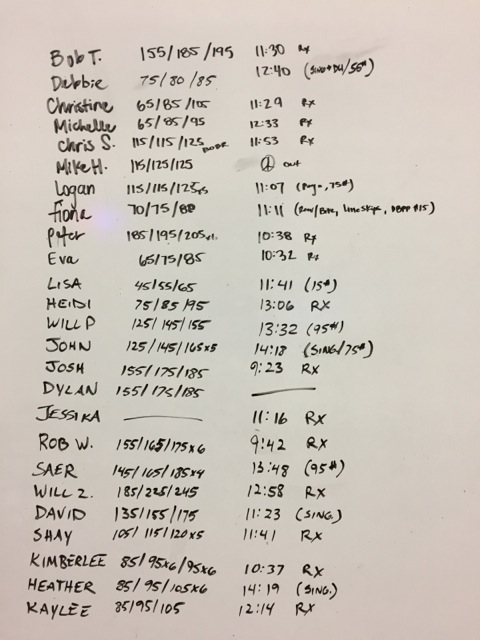 Bob T. 155/185/195 11:30 Rx
Debbie 75/80/85 12:40 (SING+DU/55#)
Christine 65/85/105 11:29 Rx
Michelle 65/85/95 12:33 Rx
Chris S. 115/115/125 11:53 Rx
Mike H. 115/125/125 out
Logan 115/115/125x5 11:07 (75#)
Fiona 70/75/80 11:11
Peter 185/195/205 10:38 Rx
Eva 65/75/85 10:32 Rx
LISA 45/55/65 11:41 (15#)
HEIDI 75/85/95 13:06 RX
WILL P 125/145/155 13:32 (95#)
JOHN 125/145/165x5 14:18 (SING/75#)
JOSH 155/175/185 9:23 RX
DYLAN 155/175/185
JESSIKA 11:16 RX
ROB W. 155/165/175x6 9:42 RX
SAER 145/165/185x4 13:48 (95#)
WILL Z. 185/225/245 12:58 RX
DAVID 135/155/175 11:23 (SING.)
SHAY 105/115/120x5 11:41 RX
KIMBERLEE 85/95x6/95x6 10:37 RX
HEATHER 85/95/105x6 14:19 (SING.)
KAYLEE 85/95/105 12:14 RX